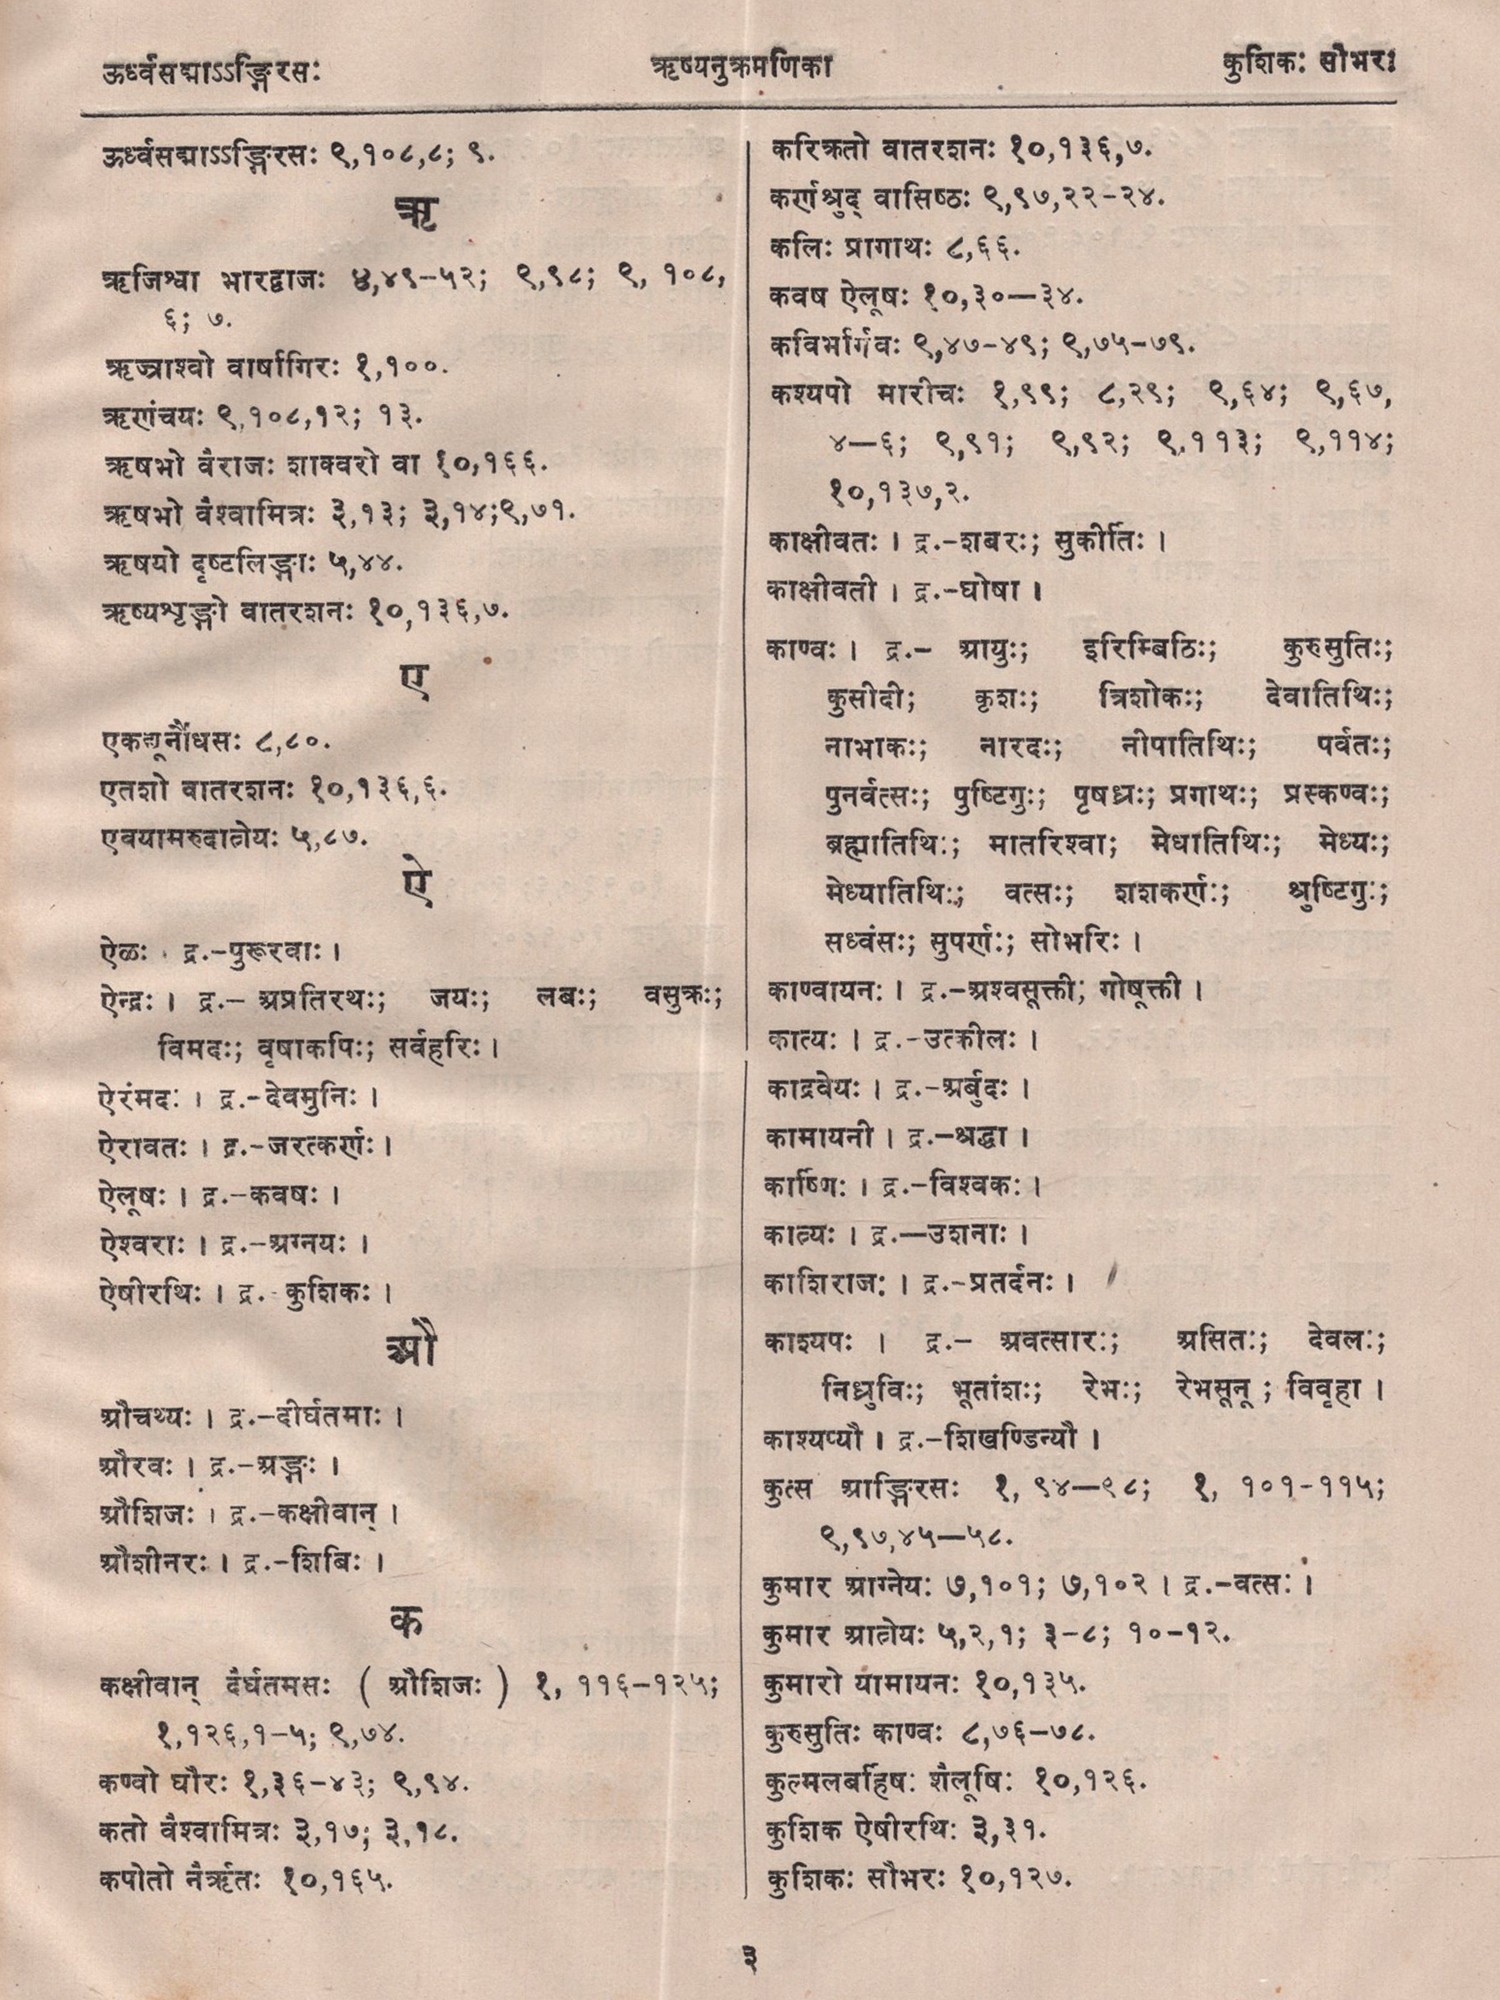 ऊर्ध्वसद्माऽऽङ्गिरसः
ऋष्यनुक्रमणिका
कुशिकः सौभरः
ऊर्ध्वसद्माऽऽङ्गिरसः ९,१०८,८; ९.
ऋ
ऋजिश्वा भारद्वाजः ४,४९-५२; ९,९८; ९, १०८,
६; ७.
ऋज्राश्वो वार्षागिरः १,१००.
ऋणंचयः ९,१०८,१२; १३.
ऋषभो वैराजः शाक्वरो वा १०,१६६.
ऋषभो वैश्वामित्रः ३,१३; ३,१४;९,७१.
ऋषयो दृष्टलिङ्गाः ५,४४.
ऋष्यशृङ्गो वातरशनः १०,१३६,७.
ए
एकद्यूर्नौधसः ८,८०.
एतशो वातरशनः १०,१३६,६.
एवयामरुदात्रेयः ५,८७.
ऐ
ऐळः द्र.-पुरूरवाः ।
ऐन्द्रः । द्र.- अप्रतिरथः; जयः; लबः; वसुक्रः;
विमदः; वृषाकपिः; सर्वहरिः ।
ऐरंमदः । द्र.-देवमुनिः ।
ऐरावतः । द्र.-जरत्कर्णः ।
ऐलूषः । द्र.-कवषः ।
ऐश्वराः । द्र.-अग्नयः ।
ऐषीरथिः । द्र.- कुशिकः ।
औ
औचथ्यः । द्र.-दीर्घतमाः ।
औरवः । द्र.-अङ्गः ।
औशिजः । द्र.-कक्षीवान् ।
औशीनरः । द्र.-शिबिः ।
क
कक्षीवान् दैर्घतमसः ( औशिजः ) १, ११६-१२५;
१,१२६,१-५; ९,७४.
कण्वो घौरः १,३६-४३; ९,९४.
कतो वैश्वामित्रः ३,१७; ३,१८.
कपोतो नैर्ऋतः १०,१६५.
करिक्रतो वातरशनः १०,१३६,७.
कर्णश्रुद् वासिष्ठः ९,९७,२२-२४.
कलिः प्रागाथः ८,६६.
कवष ऐलूषः १०,३०—३४.
कविर्भार्गवः ९,४७-४९; ९,७५-७९.
कश्यपो मारीचः १,९९; ८,२९; ९,६४; ९,६७,
४—६; ९,९१; ९,९२; ९.११३; ९,११४;
१०,१३७,२.
काक्षीवतः । द्र.-शबरः; सुकीर्तिः ।
काक्षीवती । द्र.-घोषा ।
काण्वः । द्र.- आयुः; इरिम्बिठिः; कुरुसुतिः;
कुसीदी; कृशः; त्रिशोकः; देवातिथिः;
नाभाकः; नारदः; नीपातिथिः; पर्वतः;
पुनर्वत्सः; पुष्टिगुः; पृषध्रः; प्रगाथः; प्रस्कण्वः;
ब्रह्मातिथिः; मातरिश्वा; मेधातिथिः; मेध्यः;
मेध्यातिथिः; वत्सः; शशकर्णः; श्रुष्टिगुः;
सध्वंसः; सुपर्णः; सोभरिः ।
काण्वायनः । द्र.-अश्वसूक्ती; गोषूक्ती ।
कात्यः । द्र.-उत्कीलः ।
काद्रवेयः । द्र.-अर्बुदः ।
कामायनी । द्र.—श्रद्धा ।
कार्ष्णिः । द्र.-विश्वकः ।
काव्यः । द्र.—उशनाः ।
काशिराजः । द्र.-प्रतर्दनः ।
काश्यपः । द्र.- अवत्सारः; असितः; देवलः;
निध्रुविः; भूतांशः; रेभः; रेभसूनू ; विवृहा ।
काश्यप्यौ । द्र.-शिखण्डिन्यौ ।
कुत्स आङ्गिरसः १, ९४—९८; १, १०१-११५;
९,९७,४५—५८.
कुमार आग्नेयः ७,१०१; ७,१०२ । द्र.-वत्सः ।
कुमार आत्रेयः ५,२,१; ३-८; १०-१२.
कुमारो यामायनः १०,१३५.
कुरुसुतिः काण्वः ८,७६-७८.
कुल्मलबर्हिषः शैलूषिः १०,१२६.
कुशिक ऐषीरथिः ३,३१.
कुशिकः सौभरः १०,१२७.
३